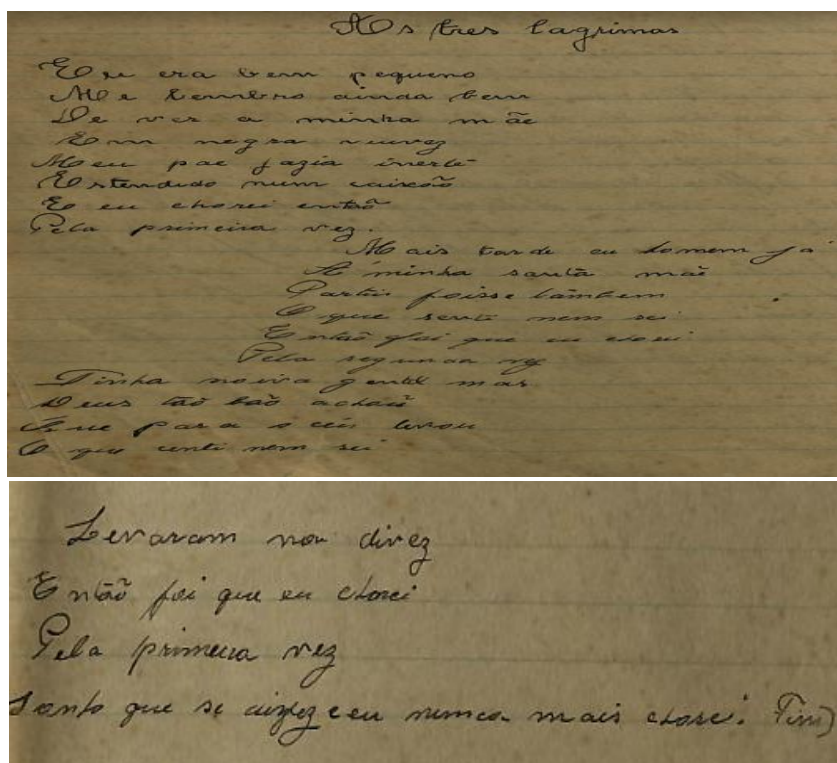 As tres lagrimas
Eu era bem pequeno
Me lembro ainda bem
De ver a minha mãe
Em negra nuvez
Meu pae jazia inerte
Estendido num caixão
E eu chorei então
Pela primeira vez.
Mais tarde eu homem já
A minha santa mãe
Partiu foisse também
O que senti nem sei
Então foi que eu chorei
Pela segunda vez
Tinha noiva gentil mas
Deus tão bão achou
Que para o céu levou
O que centi nem sei
Levaram na divez
Então foi que eu chorei
Pela primeira vez
Tanto que se eu nunca mais chorei. Fim)